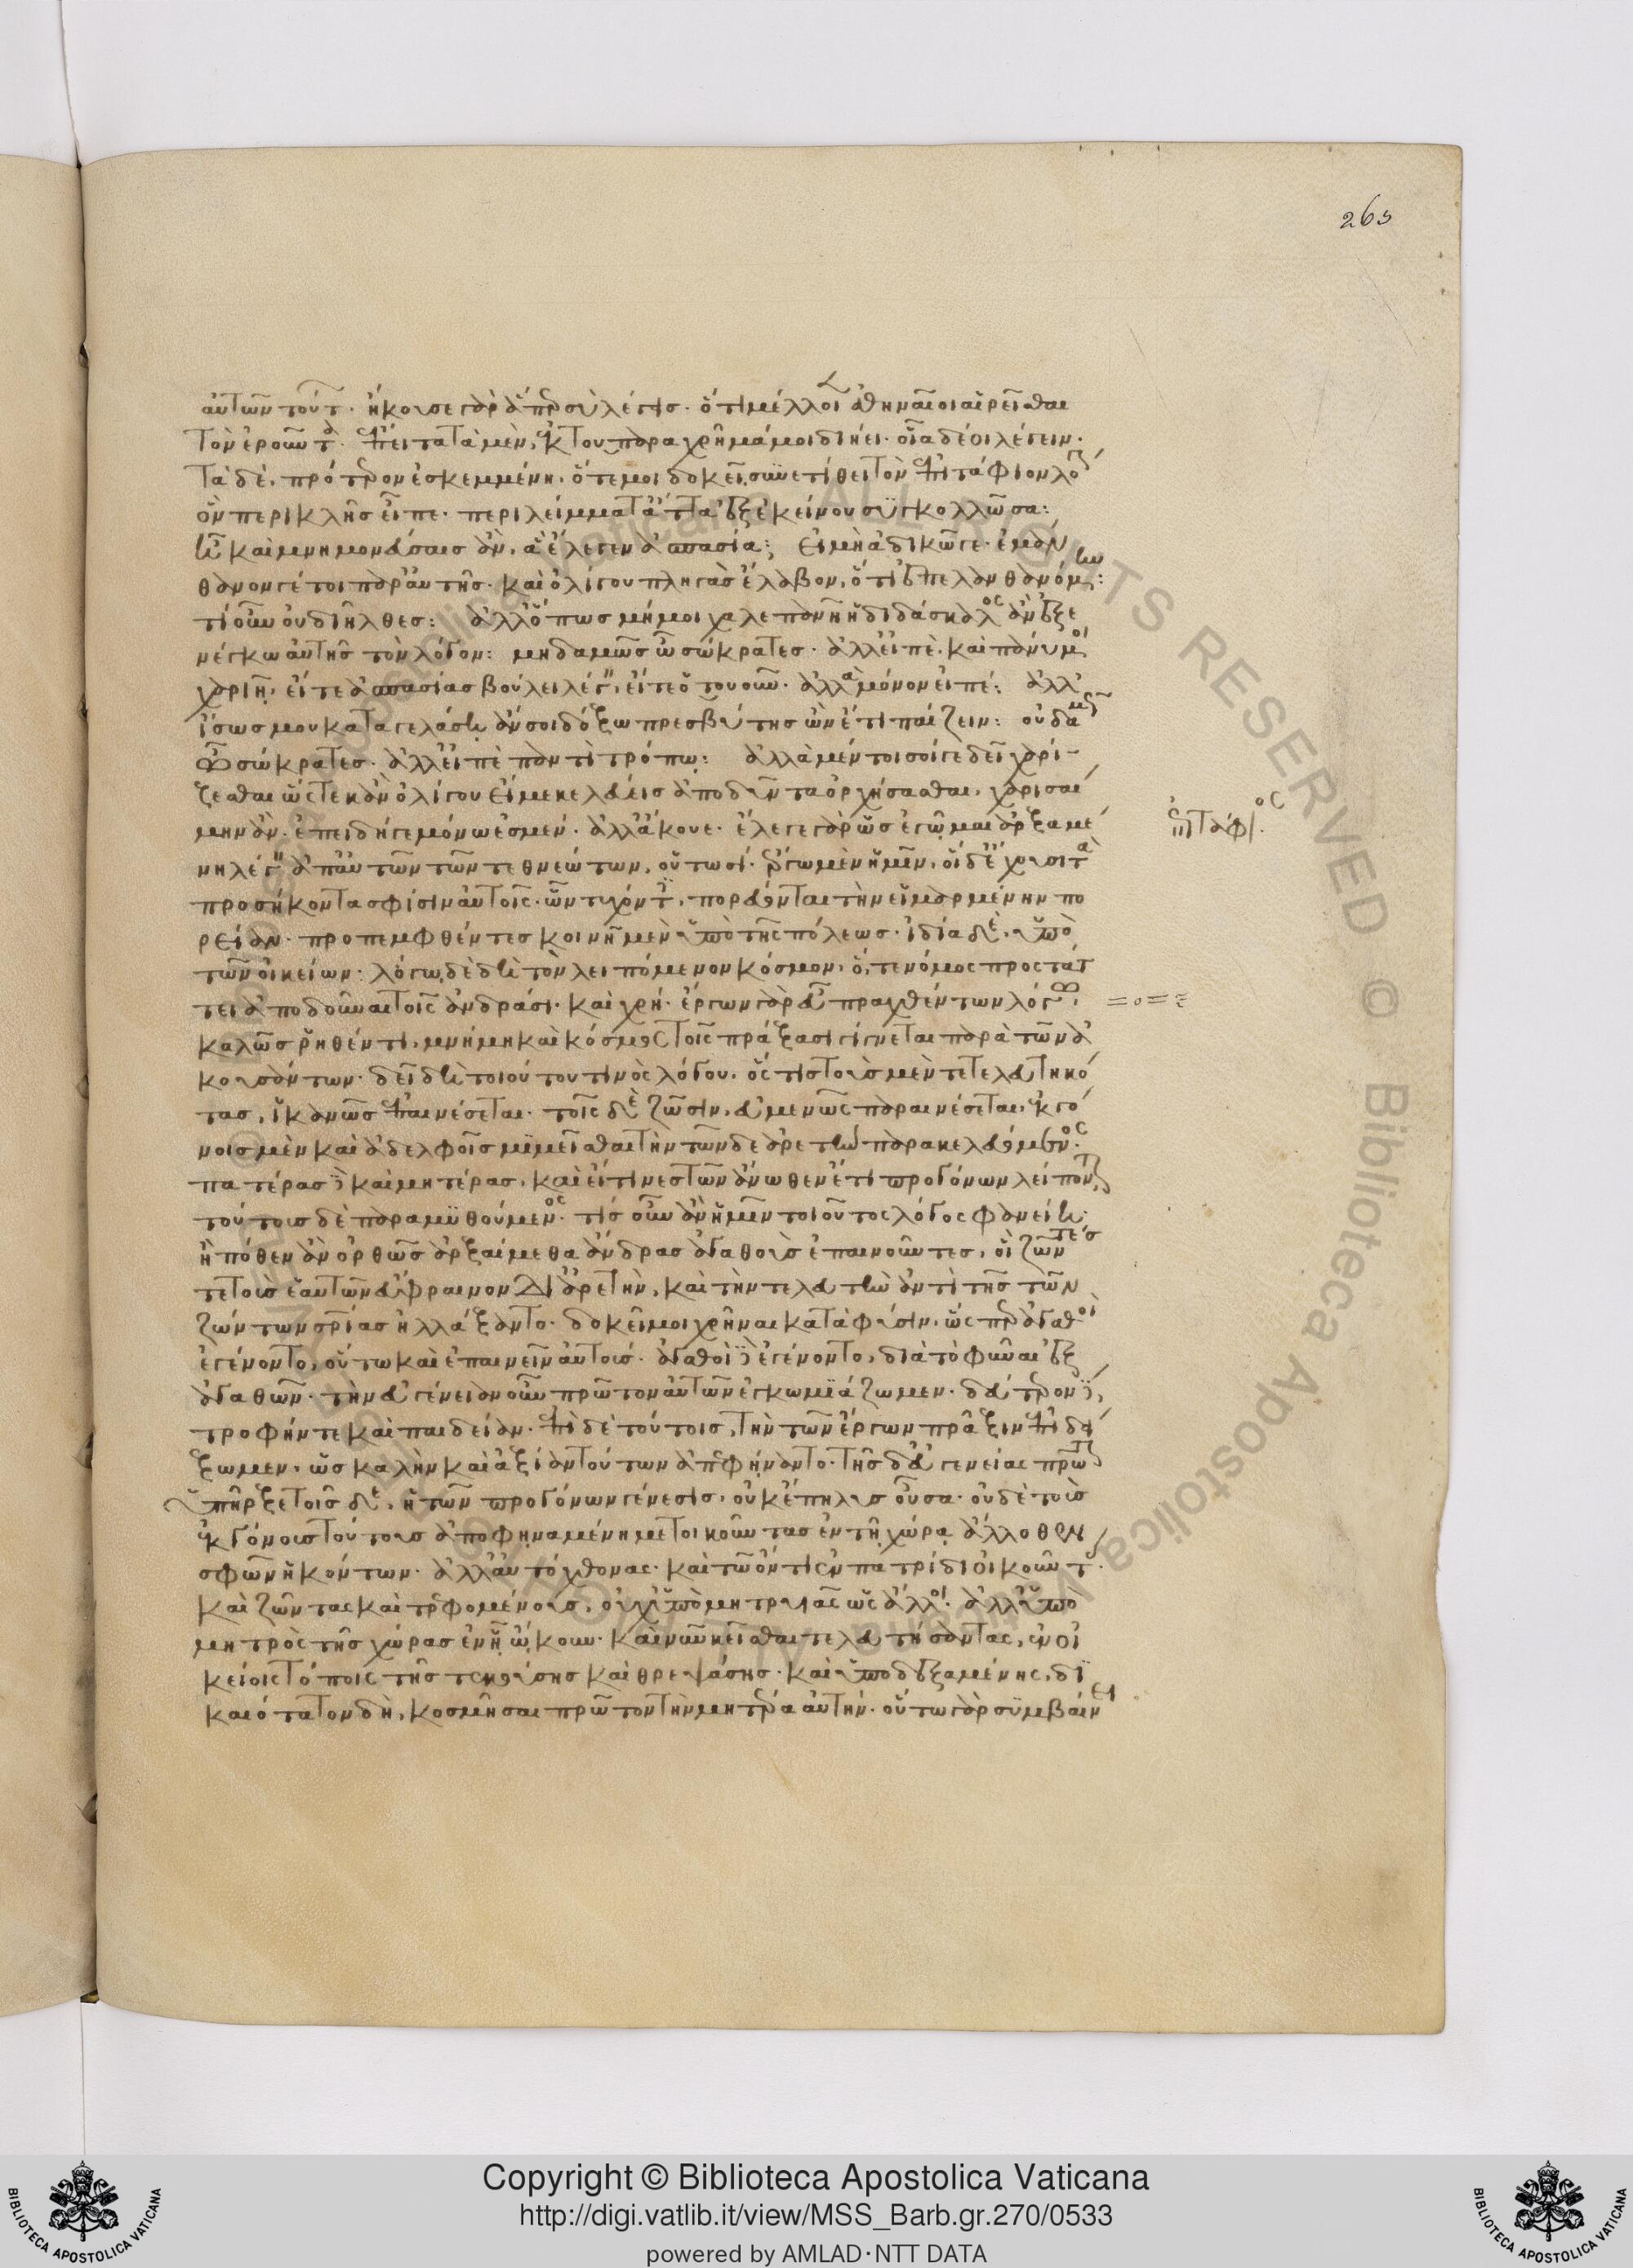 263
αὐτῶν τούτ. ἤκουσε γὰρ ἅπερ σὺ λέγεις. ὅτι μέλλοι ἀθηναῖοι αἱρεῖσθαι
τὸν ἐροῦντα. ἔπειτα τὰ μὲν, ἐκ τοῦ παραχρῆμά μοι διήει. οἷα δέοι λέγειν.
τὰ δέ, πρότερον ἐσκεμμένη, ὅτε μοι δοκεῖ συνετίθει τὸν ἐπιτάφιον λό
ὃν περικλῆς εἶπε. περιλείμματ' ἄττα ἐξ ἐκείνου συγκολλῶσα:
ἦ καὶ μνημονεύσαις ἄν, ἃ ἔλεγεν ἀσπασία; εἰ μὴ ἀδικῶ γε. ἐμάν
θανον γέ τοι παρ' αὐτῆς. καὶ ὀλίγου πληγὰς ἔλαβον, ὅτι ἐπελανθανόμην:
τί οὖν οὐ διῆλθες: ἀλλ' ὅπως μή μοι χαλεπανῇ ἡ διδάσκαλος ἂν ἐξε
νέγκω αὐτῆς τὸν λόγον: μηδαμῶς ὦ σώκρατες. ἀλλ' εἰπὲ. καὶ πάνυ μοι
χαριῇ. εἴτε ἀσπασίας βούλει λέγειν, εἴτε ὅτου οὖν. ἀλλὰ μόνον εἰπέ: ἀλλ'
ἴσως μου καταγελάσῃ ἄν σοι δόξω πρεσβύτης ὢν ἔτι παίζειν: οὐδαμῶς
ὦ σώκρατες. ἀλλ' εἰπὲ παντὶ τρόπῳ: ἀλλὰ μέντοι σοί γε δεῖ χαρί-
ζεσθαι ὥστε κἂν ὀλίγου εἴ με κελεύεις ἀποδύντα ὀρχήσασθαι, χαρισαί
μην ἄν. ἐπειδή γε μόνω ἐσμέν. ἀλλ' ἄκουε. ἔλεγε γὰρ ὡς ἐγῷμαι ἀρξαμέ
νη λέγειν ἀπ' αὐτῶν τῶν τεθνεώτων, οὑτωσί. ἔργω μὲν ἡμῖν, οἵδε ἔχουσι τὰ
προσήκοντα σφίσιν αὐτοῖς. ὧν τυχόντες, πορεύονται τὴν εἱμαρμένην πο
ρείαν. προπεμφθέντες κοινῇ μὲν ὑπὸ τῆς πόλεως. ἰδίᾳ δὲ, ὑπὸ
τῶν οἰκείων. λόγῳ δὲ δὴ τὸν λειπόμενον κόσμον, ὅ, τε νόμος προστάτ
τει ἀποδοῦναι τοῖς ἀνδράσι. καὶ χρή. ἔργων γὰρ εὖ πραχθέντων λόγῳ,
καλῶς ῥηθέντι, μνήμη καὶ κόσμος τοῖς πράξασι γίγνεται παρὰ τῶν ἀ
κουσάντων. δεῖ δὴ τοιούτου τινὸς λόγου. ὅς τις τοὺς μὲν τετελευτηκό
τας, ἱκανῶς ἐπαινέσεται. τοῖς δὲ ζῶσιν, εὐμενῶς παραινέσεται, ἐκγό
νοις μὲν καὶ ἀδελφοῖς μιμεῖσθαι τὴν τῶνδε ἀρετὴν παρακελευόμενος.
πατέρας δὲ καὶ μητέρας, καὶ εἴ τινες τῶν ἄνωθεν ἔτι προγόνων λείπονται,
τούτοις δὲ παραμυθούμενος. τίς οὖν ἂν ἡμῖν τοιοῦτος λόγος φανείη.
ἢ πόθεν ἂν ὀρθῶς ἀρξαίμεθα ἄνδρας ἀγαθοὺς ἐπαινοῦντες, οἳ ζῶντές
τε τοὺς ἑαυτῶν εὔφραινον δι' ἀρετὴν, καὶ τὴν τελευτὴν ἀντὶ τῆς τῶν
ζώντων σωτηρίας ἠλλάξαντο. δοκεῖ μοι χρῆναι κατὰ φύσιν, ὥσπερ ἀγαθοὶ
ἐγένοντο, οὕτω καὶ ἐπαινεῖν αὐτούς. ἀγαθοὶ δὲ ἐγένοντο, διὰ τὸ φῦναι ἐξ
ἀγαθῶν. τὴν εὐγένειαν οὖν πρῶτον αὐτῶν ἐγκωμιάζωμεν. δεύτερον δὲ,
τροφήν τε καὶ παιδείαν. ἐπὶ δὲ τούτοις, τὴν τῶν ἔργων πρᾶξιν ἐπιδεί
ξωμεν, ὡς καλὴν καὶ ἀξίαν τούτων ἀπεφήναντο. τῆς δ' εὐγενείας πρῶτον
ὑπῆρξε τοῖσδε, ἡ τῶν προγόνων γένεσις, οὐκ ἔπηλυς οὖσα. οὐδὲ τοὺς
ἐκγόνους τούτους ἀποφηναμένη μετοικοῦντας ἐν τῇ χώρᾳ ἄλλοθεν
σφῶν ἡκόντων. ἀλλ' αὐτόχθονας. καὶ τῶ ὄντι ἐν πατρίδι οἰκοῦντας.
καὶ ζῶντας καὶ τρεφομένους, οὐχ ὑπὸ μητρυιᾶς ὡς ἄλλοι. ἀλλ' ὑπὸ
μητρὸς τῆς χώρας ἐν ᾗ ᾤκουν. καὶ νῦν κεῖσθαι τελευτήσαντας, ἐν οἰ
κείοις τόποις τῆς τεκούσης καὶ θρεψάσης. καὶ ὑποδεξαμένης, δι
καιότατον δὴ, κοσμῆσαι πρῶτον τὴν μητέρα αὐτήν. οὕτω γὰρ συμβαίνει
ἐπιτάφιος
Copyright © Biblioteca Apostolica Vaticana
http://digi.vatlib.it/view/MSS_Barb.gr.270/0533
powered by AMLAD·NTT DATA
BIBLIOTECA APOSTOLICA VATICANA
BIBLIOTECA APOSTOLICA VATICANA